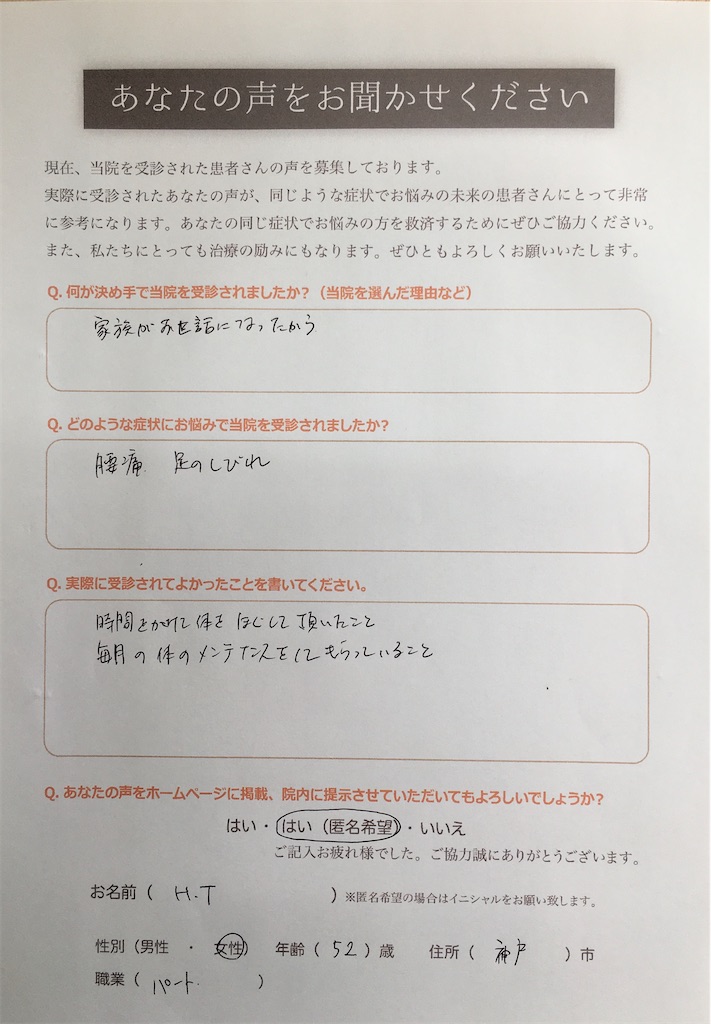 あなたの声をお聞かせください
現在、当院を受診された患者さんの声を募集しております。
実際に受診されたあなたの声が、同じような症状でお悩みの未来の患者さんにとって非常
に参考になります。あなたの同じ症状でお悩みの方を救済するためにぜひご協力ください。
また、私たちにとっても治療の励みにもなります。ぜひともよろしくお願いいたします。
Q. 何が決め手で当院を受診されましたか？（当院を選んだ理由など）
家族がお世話になったから
Q. どのような症状にお悩みで当院を受診されましたか？
腰痛 足のしびれ
Q. 実際に受診されてよかったことを書いてください。
時間をかけて体をほぐして頂いたこと
毎月の体のメンテナンスをしてもらっていること
Q. あなたの声をホームページに掲載、院内に提示させていただいてもよろしいでしょうか？
はい・はい（匿名希望）・いいえ
ご記入お疲れ様でした。ご協力誠にありがとうございます。
お名前（ H.T ）※匿名希望の場合はイニシャルをお願い致します。
性別（男性 ・ 女性） 年齢（ 52 ）歳 住所（ 神戸 ）市
職業（ パート. ）